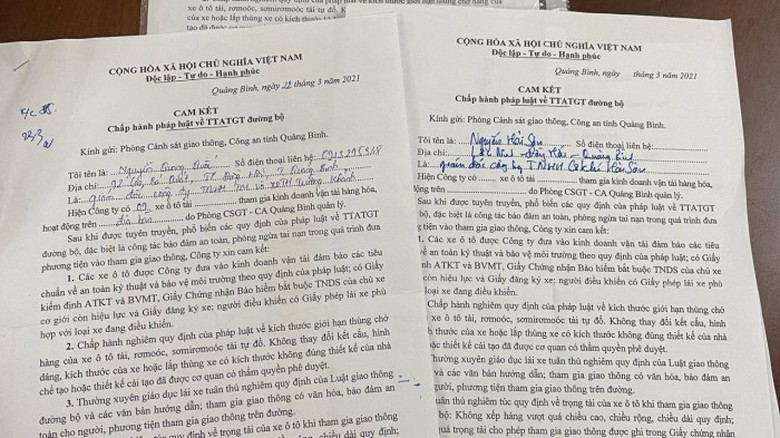 xe ô tô tải, rơmoóc, sơmirơmoóc tải tự đổ.
của xe hoặc lắp thùng xe có kích thước
CỘNG HÒA XÃ HỘI CHỦ NGHĨA VIỆT NAM
Độc lập - Tự do - Hạnh phúc
Quảng Bình, ngày 22 tháng 3 năm 2021
CAM KẾT
Chấp hành pháp luật về TTATGT đường bộ
Kính gửi: Phòng Cảnh sát giao thông, Công an tỉnh Quảng Bình.
Tôi tên là: Nguyễn Quang Số điện thoại liên hệ:
Địa chỉ:
Là: giám đốc công ty TNHH TM
Hiện Công ty có 09 xe ô tô tải tham gia kinh doanh vận tải hàng hóa,
hoạt động trên địa bàn do Phòng CSGT - CA Quảng Bình quản lý.
Sau khi được tuyên truyền, phổ biến các quy định của pháp luật về TTATGT
đường bộ, đặc biệt là công tác bảo đảm an toàn, phòng ngừa tai nạn trong quá trình đưa
phương tiện vào tham gia giao thông, Công ty xin cam kết:
1. Các xe ô tô được Công ty đưa vào kinh doanh vận tải đảm bảo các tiêu
chuẩn về an toàn kỹ thuật và bảo vệ môi trường theo quy định của pháp luật; có Giấy
kiểm định ATKT và BVMT, Giấy Chứng nhận Bảo hiểm bắt buộc TNDS của chủ xe
cơ giới còn hiệu lực và Giấy đăng ký xe; người điều khiển có Giấy phép lái xe phù
hợp với loại xe đang điều khiển.
2. Chấp hành nghiêm quy định của pháp luật về kích thước giới hạn thùng chở
hàng của xe ô tô tải, rơmoóc, sơmirơmoóc tải tự đổ. Không thay đổi kết cấu, hình
dáng, kích thước của xe hoặc lắp thùng xe có kích thước không đúng thiết kế của nhà
chế tạo hoặc thiết kế cải tạo đã được cơ quan có thẩm quyền phê duyệt.
3. Thường xuyên giáo dục lái xe tuân thủ nghiêm quy định của Luật giao thông
đường bộ và các văn bản hướng dẫn; tham gia giao thông có văn hóa, bảo đảm an
toàn cho người, phương tiện tham gia giao thông trên đường.
CỘNG HÒA XÃ HỘI CHỦ NGHĨA VIỆT NAM
Độc lập - Tự do - Hạnh phúc
Quảng Bình, ngày tháng 3 năm 2021
CAM KẾT
Chấp hành pháp luật về TTATGT đường bộ
Kính gửi: Phòng Cảnh sát giao thông, Công an tỉnh Quảng Bình.
Tôi tên là: Nguyễn Hải Sơn Số điện thoại liên hệ:
Địa chỉ: Lộc Ninh - Đồng Hới - Quảng Bình
Là: giám đốc công ty TNHH Cơ khí Hải Sơn
Hiện Công ty có xe ô tô tải tham gia kinh doanh vận tải hàng hóa,
động trên do Phòng CSGT - CA Quảng Bình quản lý.
Sau khi được tuyên truyền, phổ biến các quy định của pháp luật về TTATGT
bộ, đặc biệt là công tác bảo đảm an toàn, phòng ngừa tai nạn trong quá trình đưa
tiện vào tham gia giao thông, Công ty xin cam kết:
1. Các xe ô tô được Công ty đưa vào kinh doanh vận tải đảm bảo các tiêu
về an toàn kỹ thuật và bảo vệ môi trường theo quy định của pháp luật; có Giấy
định ATKT và BVMT, Giấy Chứng nhận Bảo hiểm bắt buộc TNDS của chủ xe
còn hiệu lực và Giấy đăng ký xe; người điều khiển có Giấy phép lái xe phù
loại xe đang điều khiển.
Chấp hành nghiêm quy định của pháp luật về kích thước giới hạn thùng chở
xe ô tô tải, rơmoóc, sơmirơmoóc tải tự đổ. Không thay đổi kết cấu, hình
thước của xe hoặc lắp thùng xe có kích thước không đúng thiết kế của nhà
hoặc thiết kế cải tạo đã được cơ quan có thẩm quyền phê duyệt.
Thường xuyên giáo dục lái xe tuân thủ nghiêm quy định của Luật giao thông
và các văn bản hướng dẫn; tham gia giao thông có văn hóa, bảo đảm an
người, phương tiện tham gia giao thông trên đường.
nghiêm túc quy định về tải trọng của xe ô tô khi tham gia giao thông
bộ: Không xếp hàng vượt quá chiều cao, chiều rộng, chiều dài quy định;
quá tải trọng cho phép tham gia giao thông được ghi trong Giấy chứng